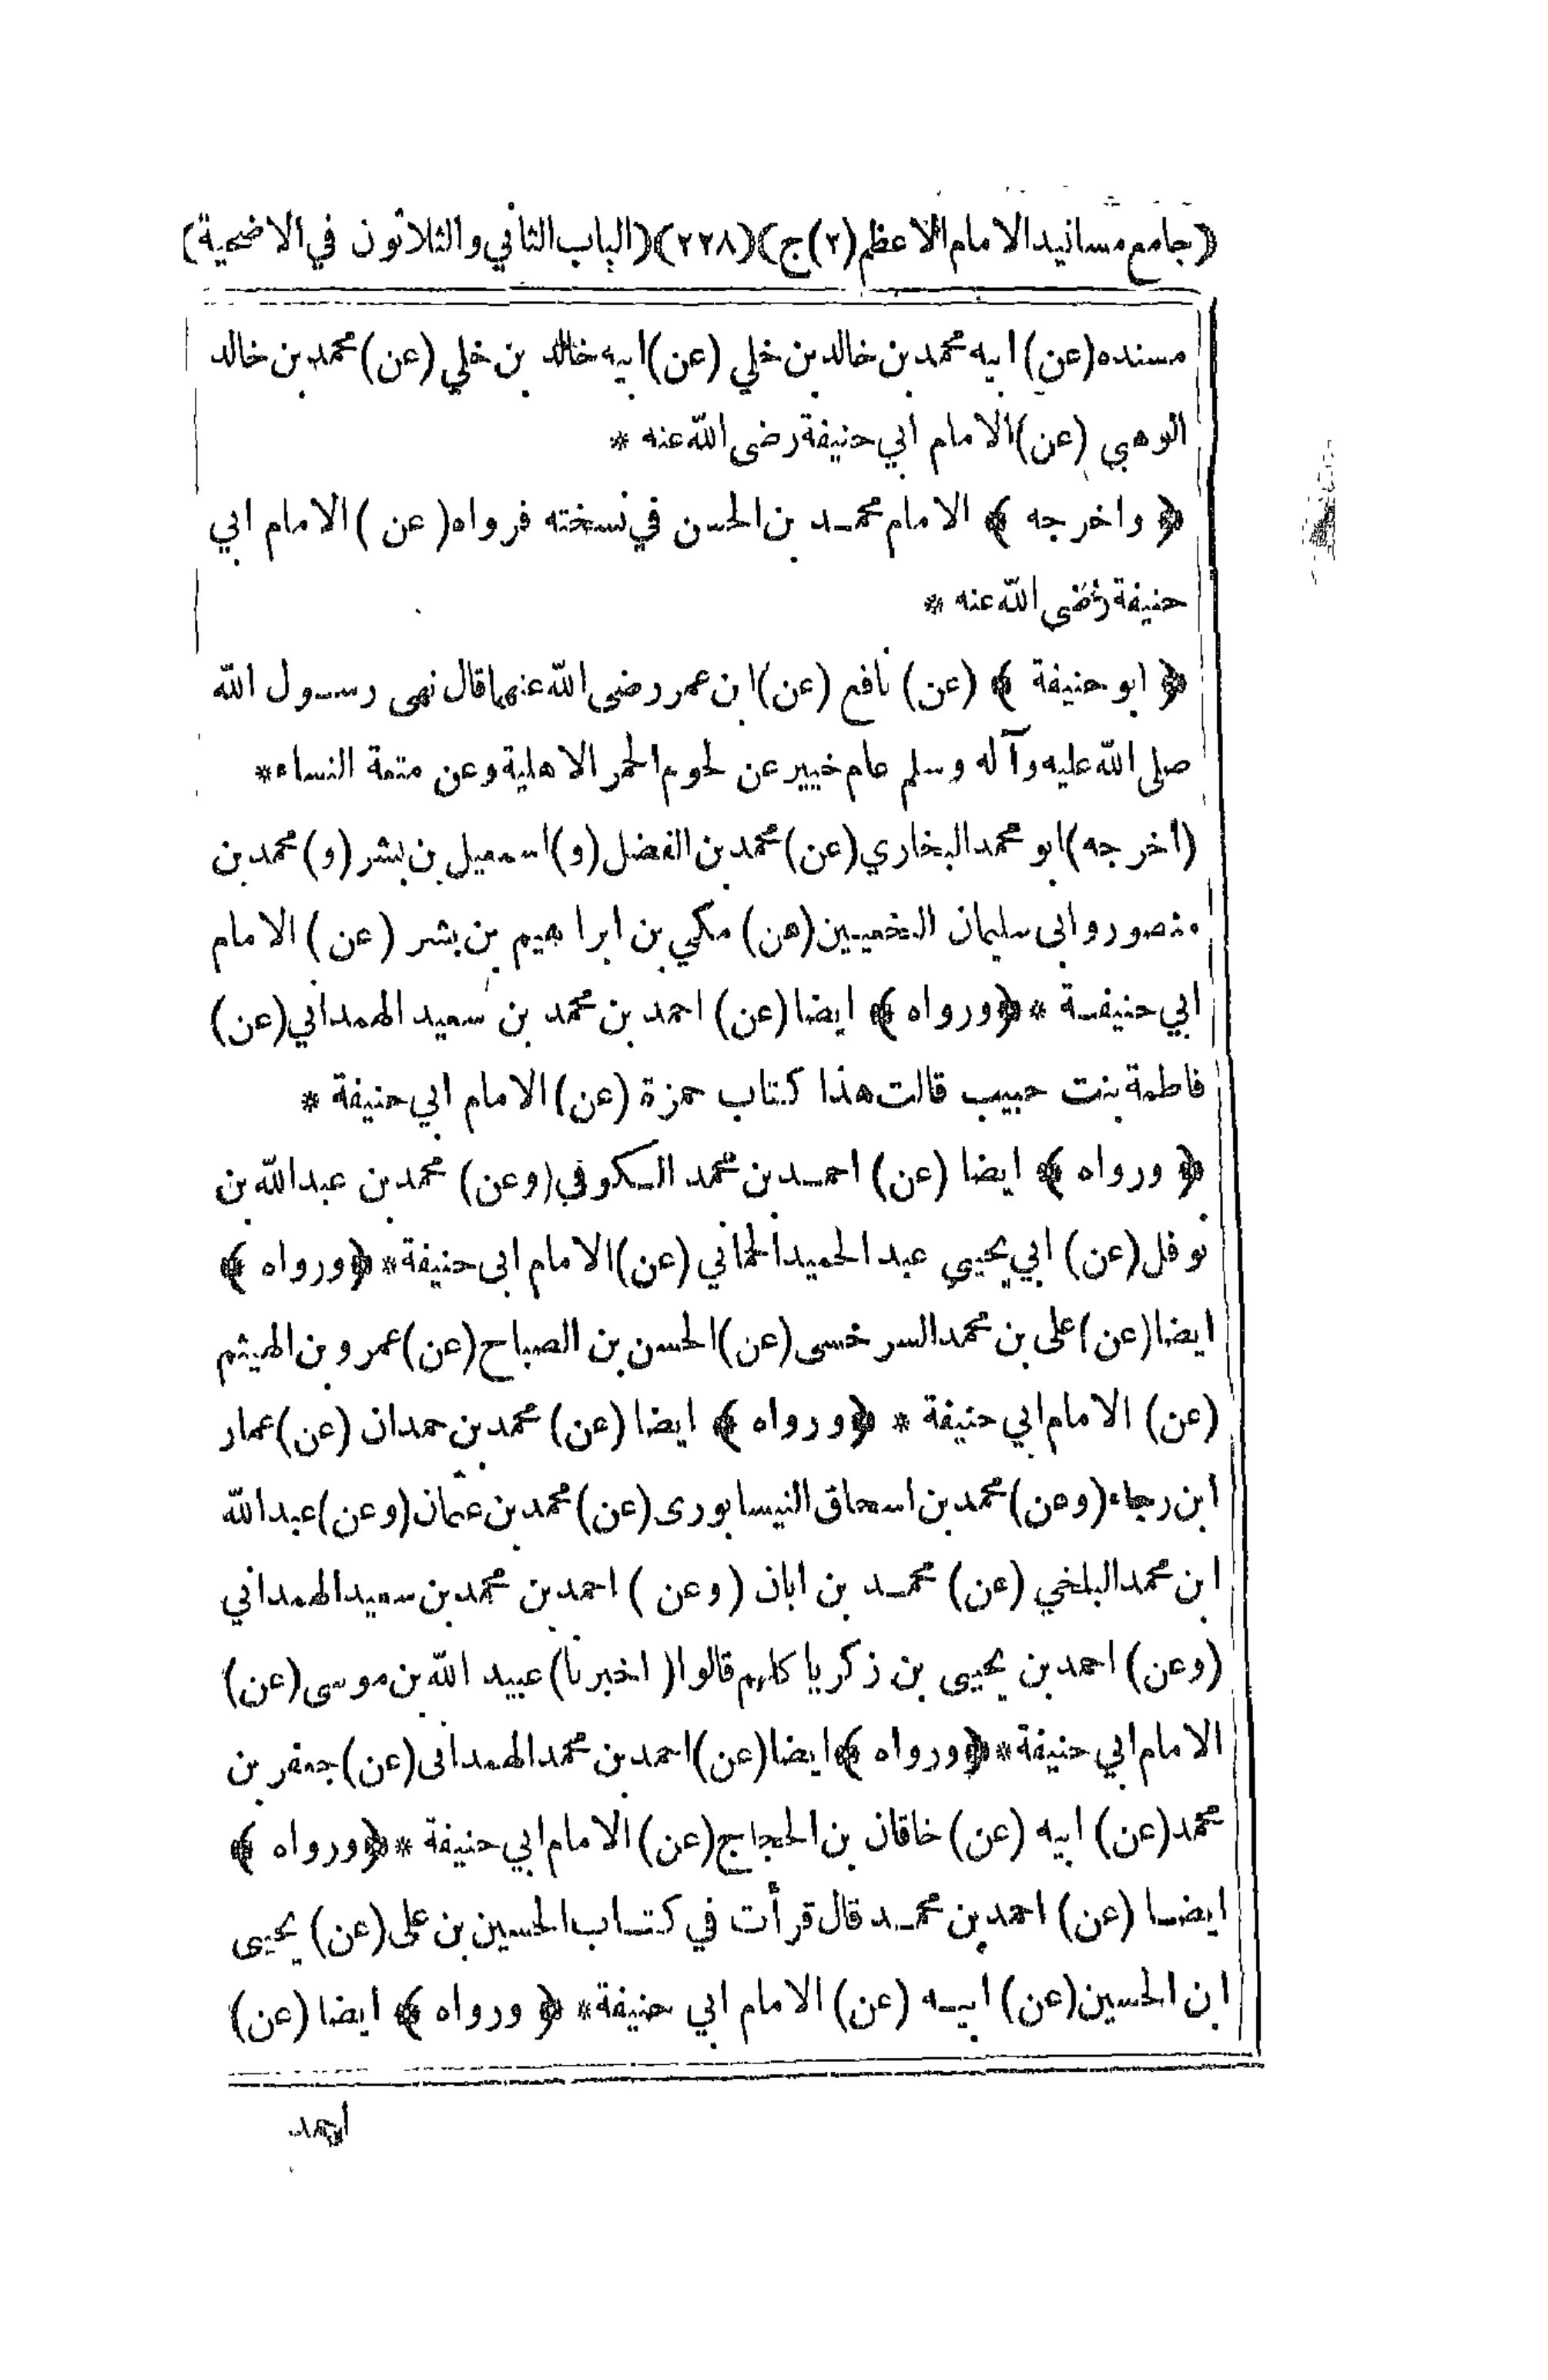 (جامع مسانيد الامام الاعظم (٢) ج) (٢٢٨) (الباب الثاني والثلاثون في الاضحية)
مسنده (عن) ابيه محمد بن خالد بن خلي (عن) ابيه خالد بن خلي (عن) محمد بن خالد
الوهبي (عن) الامام ابي حنيفة رضى الله عنه *
﴿ واخرجه ﴾ الامام محمد بن الحسن في نسخته فرواه (عن) الامام ابي
حنيفة رضى الله عنه *
﴿ ابو حنيفة ﴾ (عن) نافع (عن) ابن عمر رضى الله عنهما قال نهى رسول الله
صلى الله عليه وآله وسلم عام خيبر عن لحوم الحمر الاهلية وعن متعة النساء *
(اخرجه) ابو محمد البخاري (عن) محمد بن الفضل (و) اسمعيل بن بشر (و) محمد بن
منصور وابى سليمان (عن) مكي بن ابراهيم بن بشر (عن) الامام
ابي حنيفة * ﴿ ورواه ﴾ ايضا (عن) احمد بن محمد بن سعيد الهمداني (عن)
فاطمة بنت حبيب قالت هذا كتاب حمزة (عن) الامام ابي حنيفة *
﴿ ورواه ﴾ ايضا (عن) احمد بن محمد الكوفي (وعن) محمد بن عبد الله بن
نوفل (عن) ابي يحيى عبد الحميد الحماني (عن) الامام ابى حنيفة * ﴿ ورواه ﴾
ايضا (عن) على بن محمد السرخسى (عن) الحسن بن الصباح (عن) عمرو بن الهيثم
(عن) الامام ابي حنيفة * ﴿ ورواه ﴾ ايضا (عن) محمد بن حمدان (عن) عمار
ابن رجاء (وعن) محمد بن اسحاق النيسابورى (عن) محمد بن عثمان (وعن) عبد الله
ابن محمد البلخي (عن) محمد بن ابان (وعن) احمد بن محمد بن سعيد الهمداني
(وعن) احمد بن يحيى بن زكريا كلهم قالوا (اخبرنا) عبيد الله بن موسى (عن)
الامام ابي حنيفة * ﴿ ورواه ﴾ ايضا (عن) احمد بن محمد الهمدانى (عن) جعفر بن
محمد (عن) ابيه (عن) خاقان بن الحجاج (عن) الامام ابي حنيفة * ﴿ ورواه ﴾
ايضا (عن) احمد بن محمد قال قرأت في كتاب الحسين بن على (عن) يحيى
ابن الحسين (عن) ابيه (عن) الامام ابي حنيفة * ﴿ ورواه ﴾ ايضا (عن)
احمد